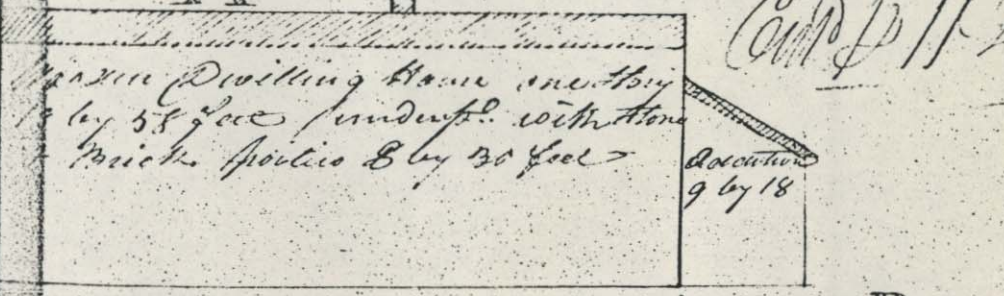 Dwelling House one story
by 58 feet underpd. with Stone
Brick portico 8 by 30 feet
addition
9 by 18